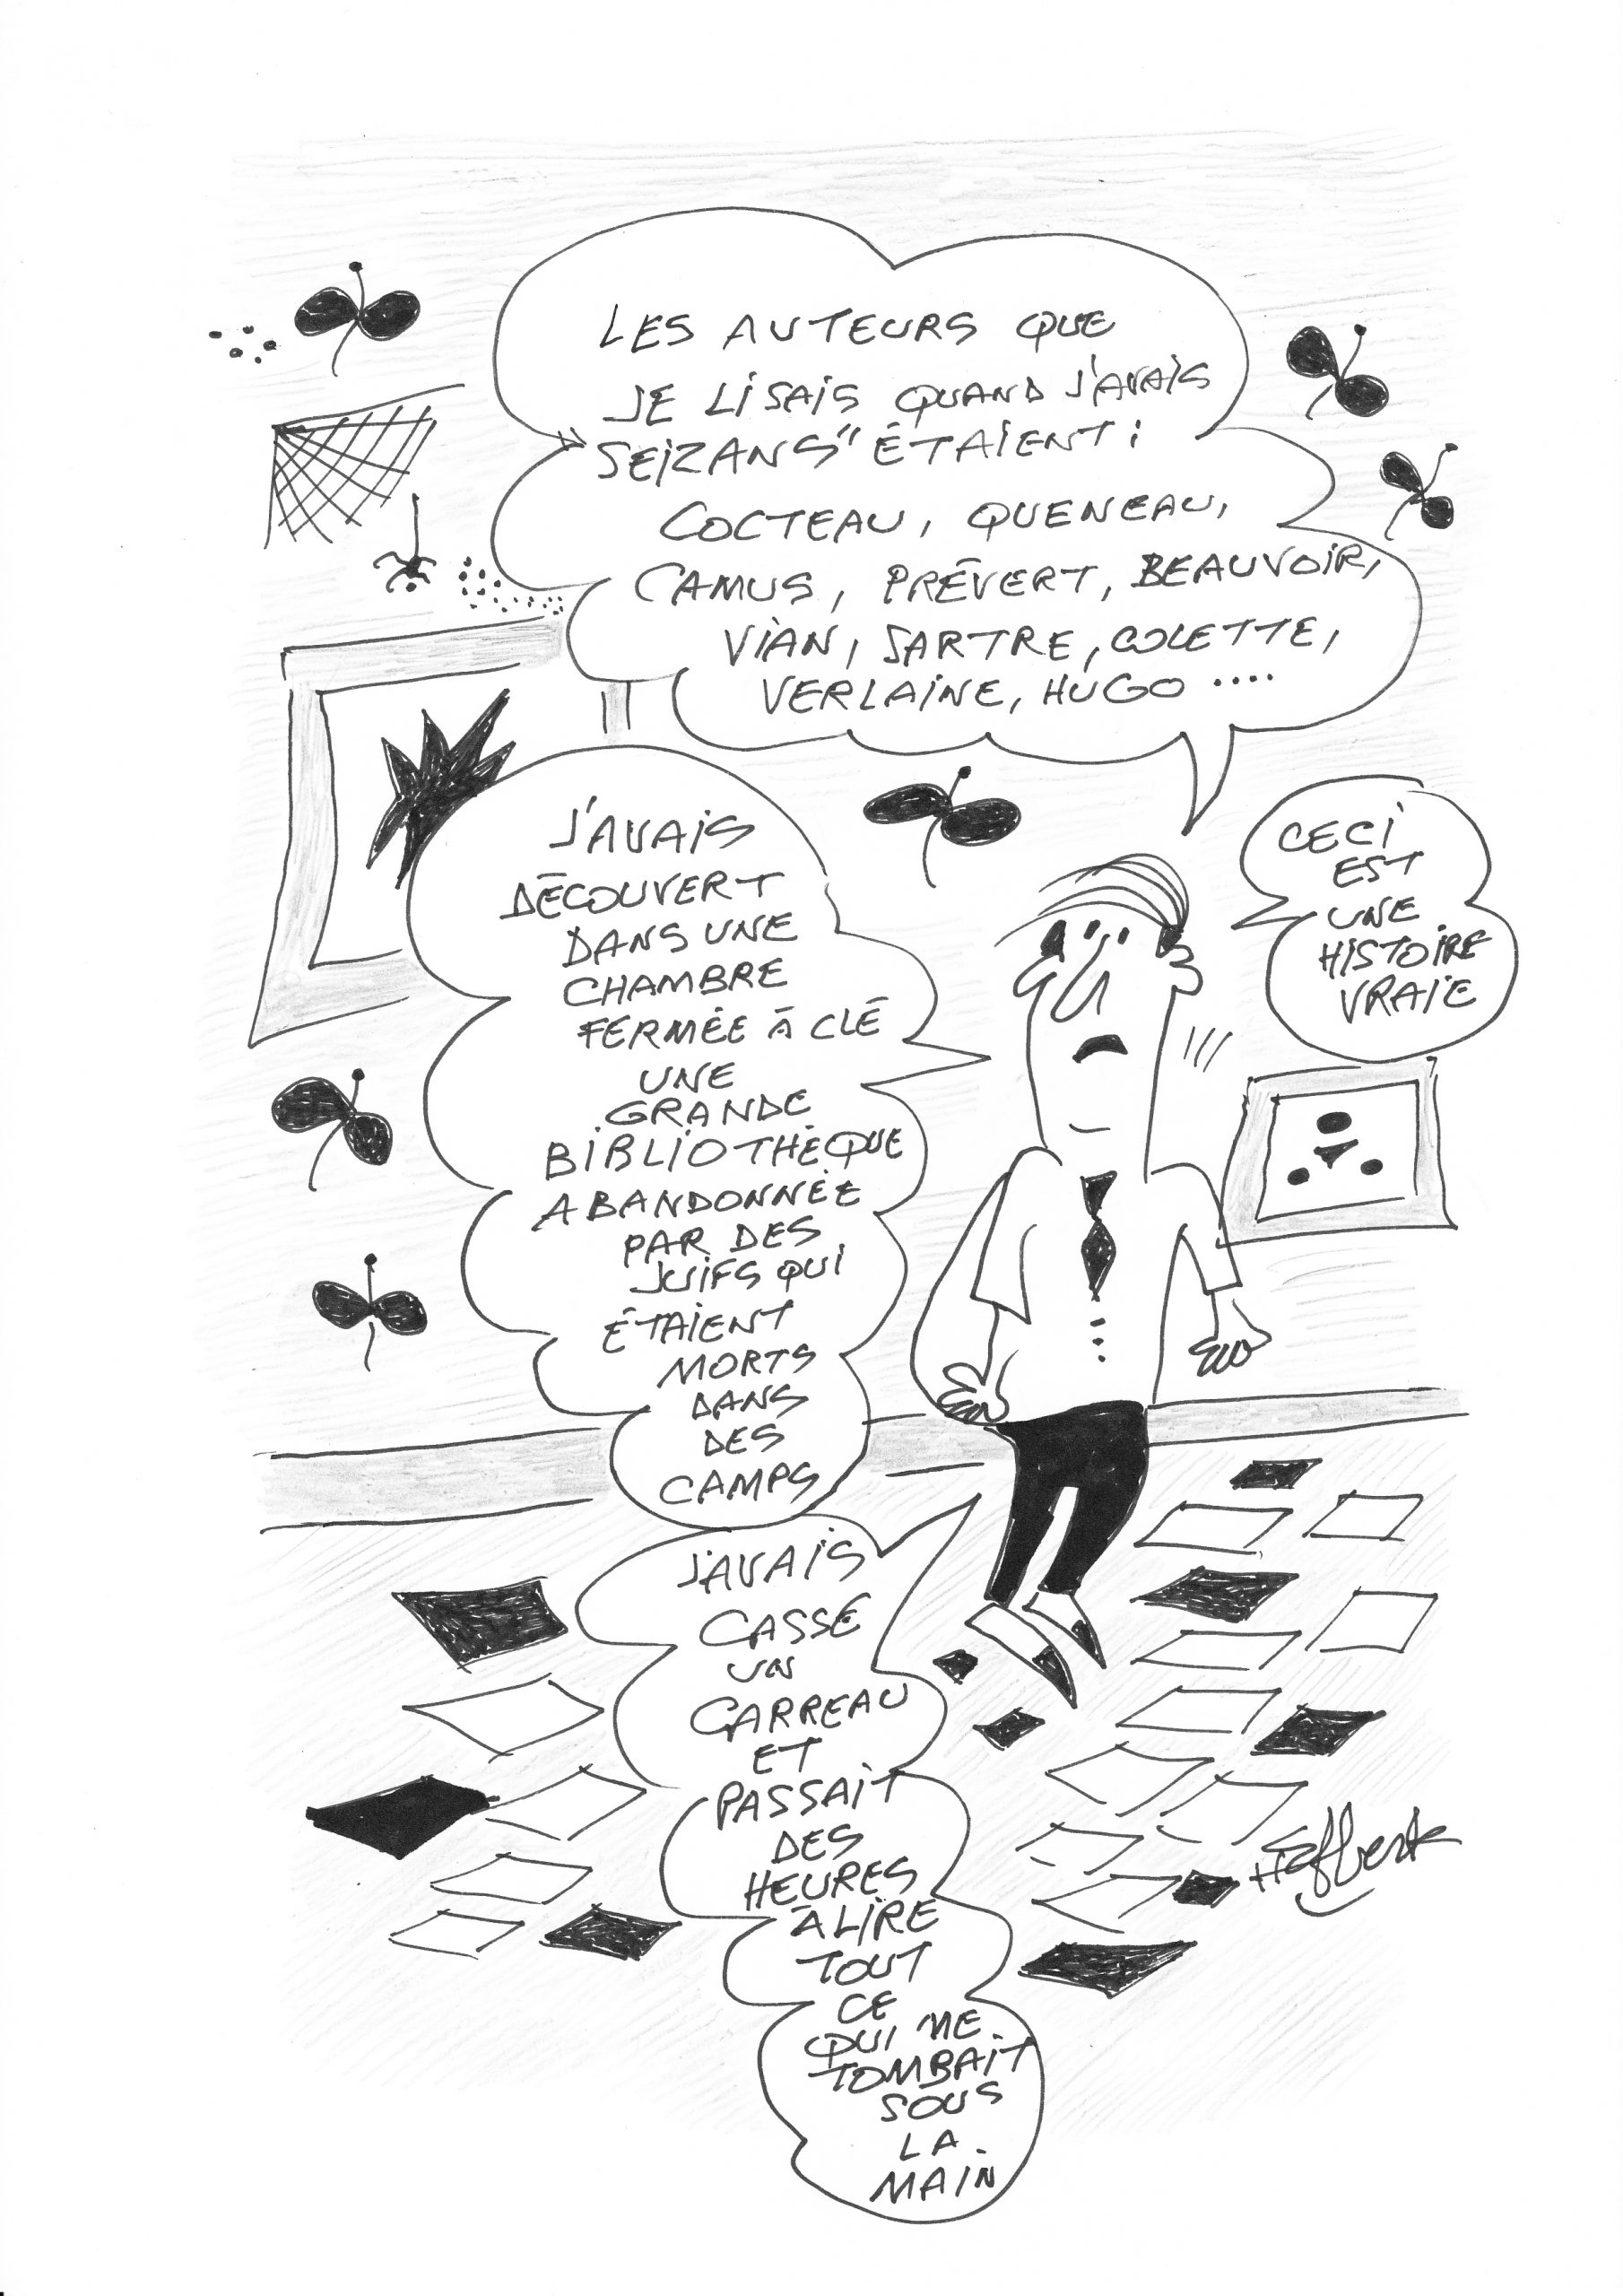 LES AUTEURS QUE
JE LISAIS QUAND J'AVAIS
"SEIZANS" ÉTAIENT :
COCTEAU, QUENEAU,
CAMUS, PRÉVERT, BEAUVOIR,
VIAN, SARTRE, COLETTE,
VERLAINE, HUGO ....
J'AVAIS
DÉCOUVERT
DANS UNE
CHAMBRE
FERMÉE À CLÉ
UNE
GRANDE
BIBLIOTHÈQUE
ABANDONNÉE
PAR DES
JUIFS QUI
ÉTAIENT
MORTS
DANS
DES
CAMPS
CECI
EST
UNE
HISTOIRE
VRAIE
J'AVAIS
CASSÉ
UN
CARREAU
ET
PASSAIT
DES
HEURES
À LIRE
TOUT
CE
QUI ME
TOMBAIT
SOUS
LA
MAIN